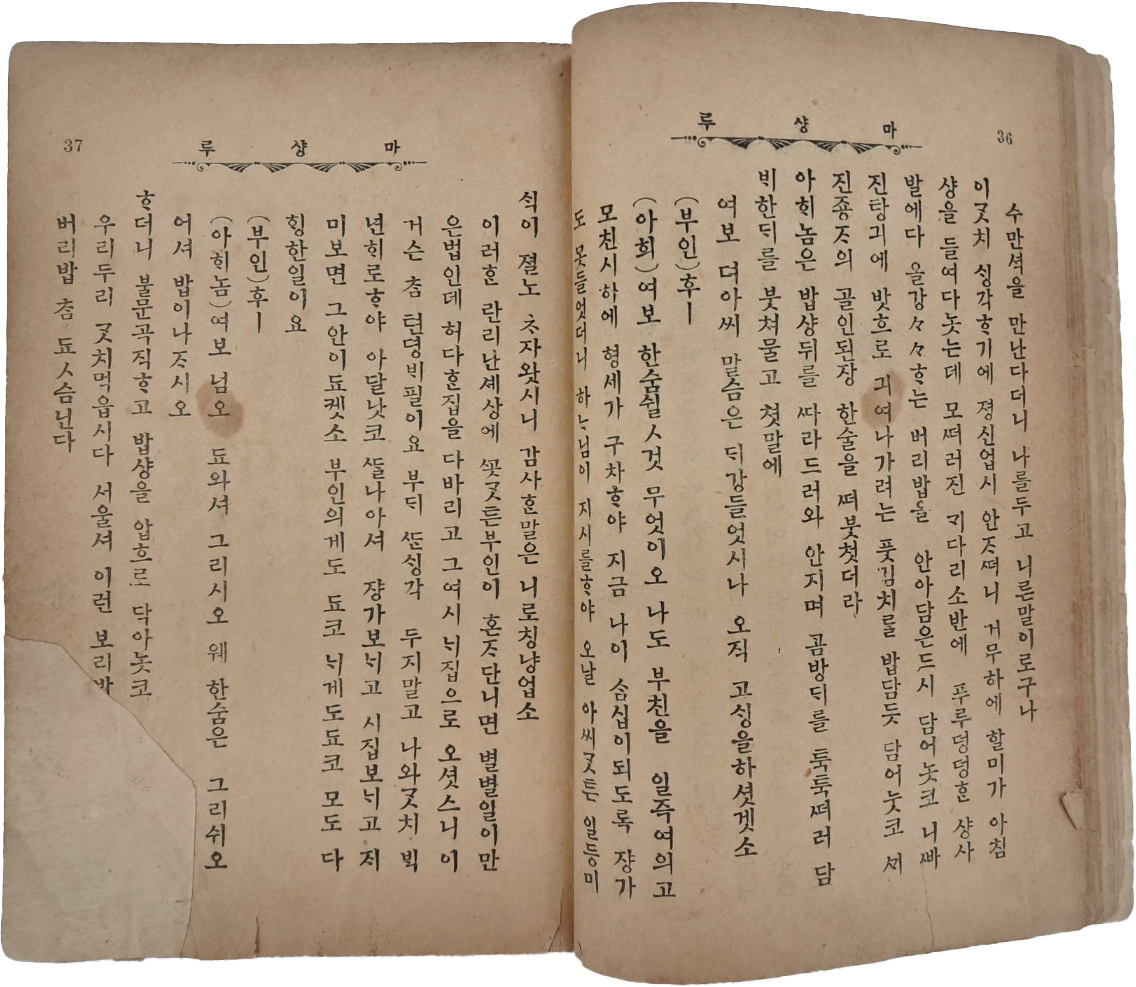 36
마 샹 루
수만셔을 만난다더니 나를두고 니른말이로구나
이ᄀᆞᆺ치 ᄉᆡᆼ각ᄒᆞ기에 졍신업시 안ᄌᆞ쪄니 거무하에 할미가 아침
샹을 들여다놋는데 모ᄯᅥ러진 ᄀᆡ다리소반에 푸루덩덩ᄒᆞᆫ 샹사
발에다 올강々々ᄒᆞ는 버리밥을 안아담은드시 담어놋코 니ᄲᅡ
진탕긔에 밧흐로 긔여나가려는 풋김치를 밥담듯 담어놋코 ᄶᅦ
진죵ᄌᆞ의 골인된장 한술을 ᄯᅥ붓첫더라
아ᄒᆡ놈은 밥샹뒤를 ᄯᅡ라드러와 안지며 곰방ᄃᆡ를 툭툭ᄯᅥ러 담
ᄇᆡ한ᄃᆡ를 붓쳐물고 쳣말에
여보 뎌아씨 말슴은 ᄃᆡ강들엇시나 오직 고ᄉᆡᆼ을하셧겟소
(부인)후ㅣ
(아희)여보 한숨쉴ㅅ것 무엇이오 나도 부친을 일즉여의고
모친시하에 형세가 구차ᄒᆞ야 지금 나이 ᄉᆞᆷ십이되도록 쟝가
도 못들엇더니 하ᄂᆞ님이 지시를ᄒᆞ야 오날 아씨ᄀᆞᆺ튼 일등미
37
마 샹 루
ᄉᆡᆨ이 졀노 ᄎᆞ자왓시니 감사ᄒᆞᆫ말은 니로칭냥업소
이러ᄒᆞᆫ 란리난셰상에 ᄭᅩᆺᄀᆞᆺ튼부인이 혼ᄌᆞ단니면 별별일이만
은법인데 허다ᄒᆞᆫ집을 다바리고 그여시 ᄂᆡ집으로 오셧스니 이
거슨 ᄎᆞᆷ 텬뎡ᄇᆡ필이요 부ᄃᆡ ᄯᅡᆫᄉᆡᆼ각 두지말고 나와ᄀᆞᆺ치 ᄇᆡᆨ
년ᄒᆡ로ᄒᆞ야 아달낫코 ᄯᅡᆯ나아셔 쟝가보ᄂᆡ고 시집보ᄂᆡ고 ᄌᆡ
미보면 그안이됴켓소 부인의게도 됴코 ᄂᆡ게도됴코 모도 다
ᄒᆡᆼ한일이요
(부인)후ㅣ
(아ᄒᆡ놈)여보 넘오 됴와셔 그리시오 웨 한숨은 그리쉬오
어셔 밥이나ᄌᆞ시오
ᄒᆞ더니 불문곡직ᄒᆞ고 밥샹을 압흐로 닥아놋코
우리두리 ᄀᆞᆺ치먹읍시다 서울셔 이런 보리
버리밥 ᄎᆞᆷ 됴ㅅ슴닌다